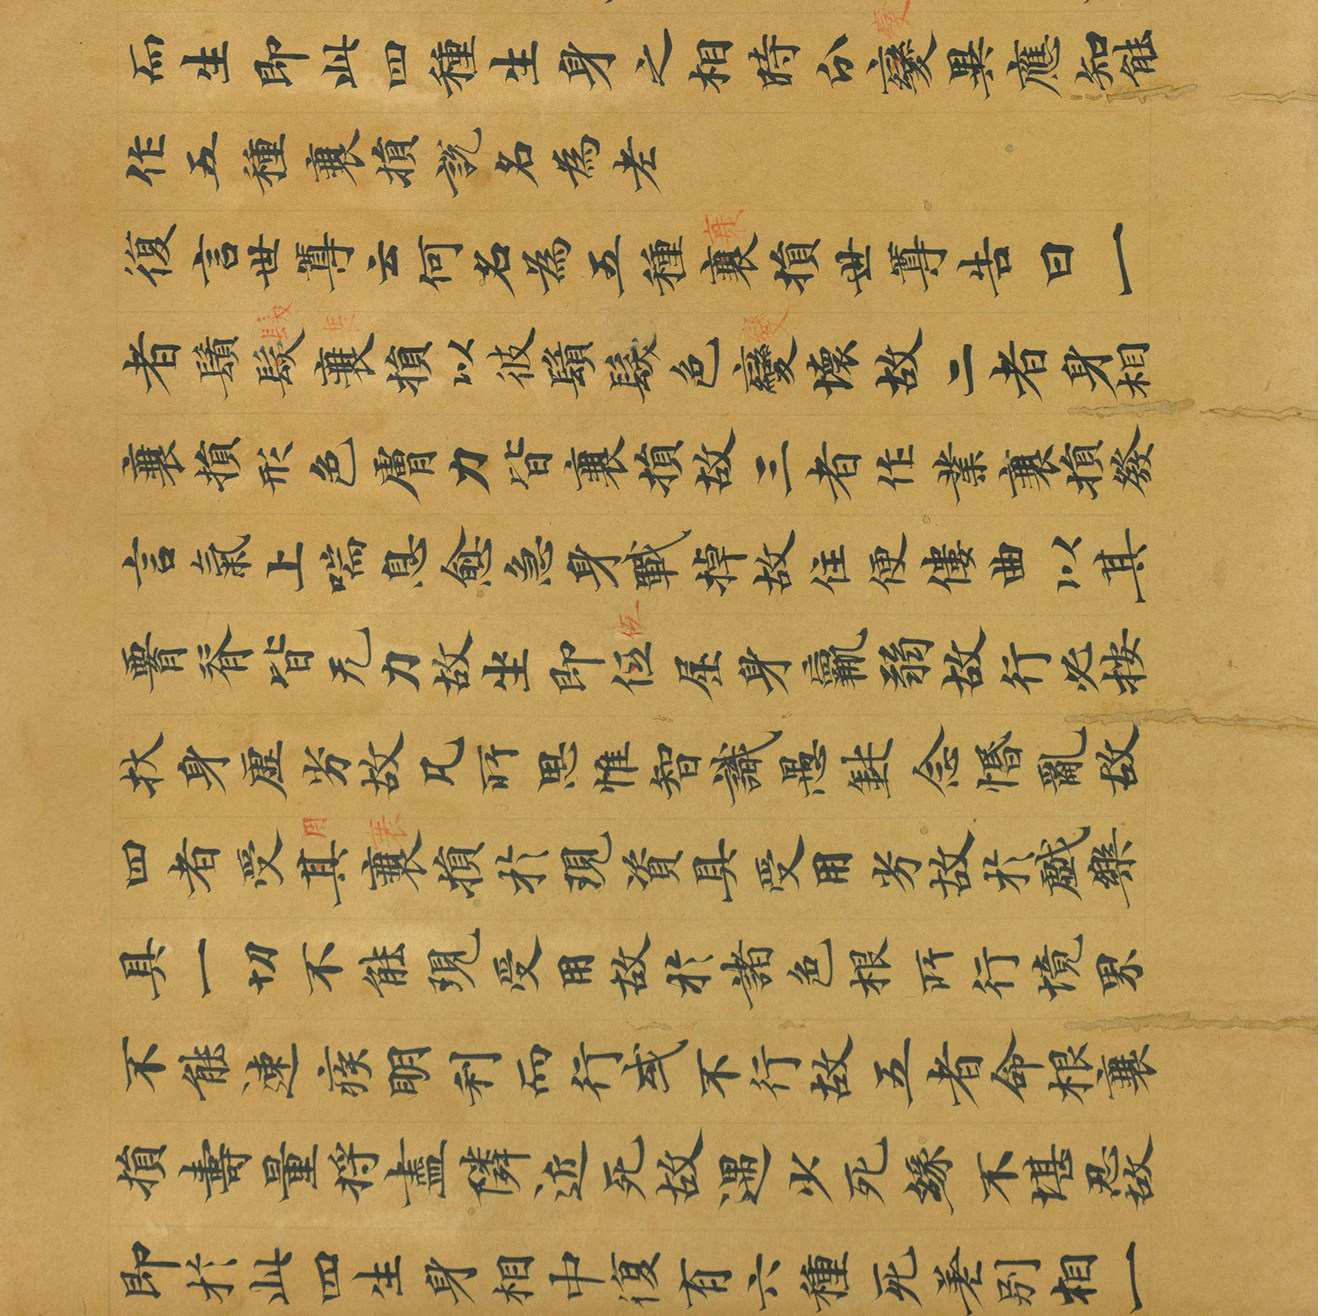 而生即此四種生身之相時分變異應知能
作五種衰損說名為老
復言世尊云何名為五種衰損世尊告曰一
者鬚髮衰損以彼鬚髮色變壞故二者身相
衰損形色膚力皆衰損故三者作業衰損發
言氣上喘息愈急身戰掉故住便僂曲以其
腰脊皆无力故坐即低屈身羸弱故行必按
杖身虛劣故凡所思惟智識愚鈍念惛亂故
四者受其衰損於現資具受用劣故於戲樂
具一切不能現受用故於諸色根所行境界
不能速疾明利而行或不行故五者命根衰
損壽量將盡隣近死故遇少死緣不堪忍故
即於此四生身相中復有六種死差別相一